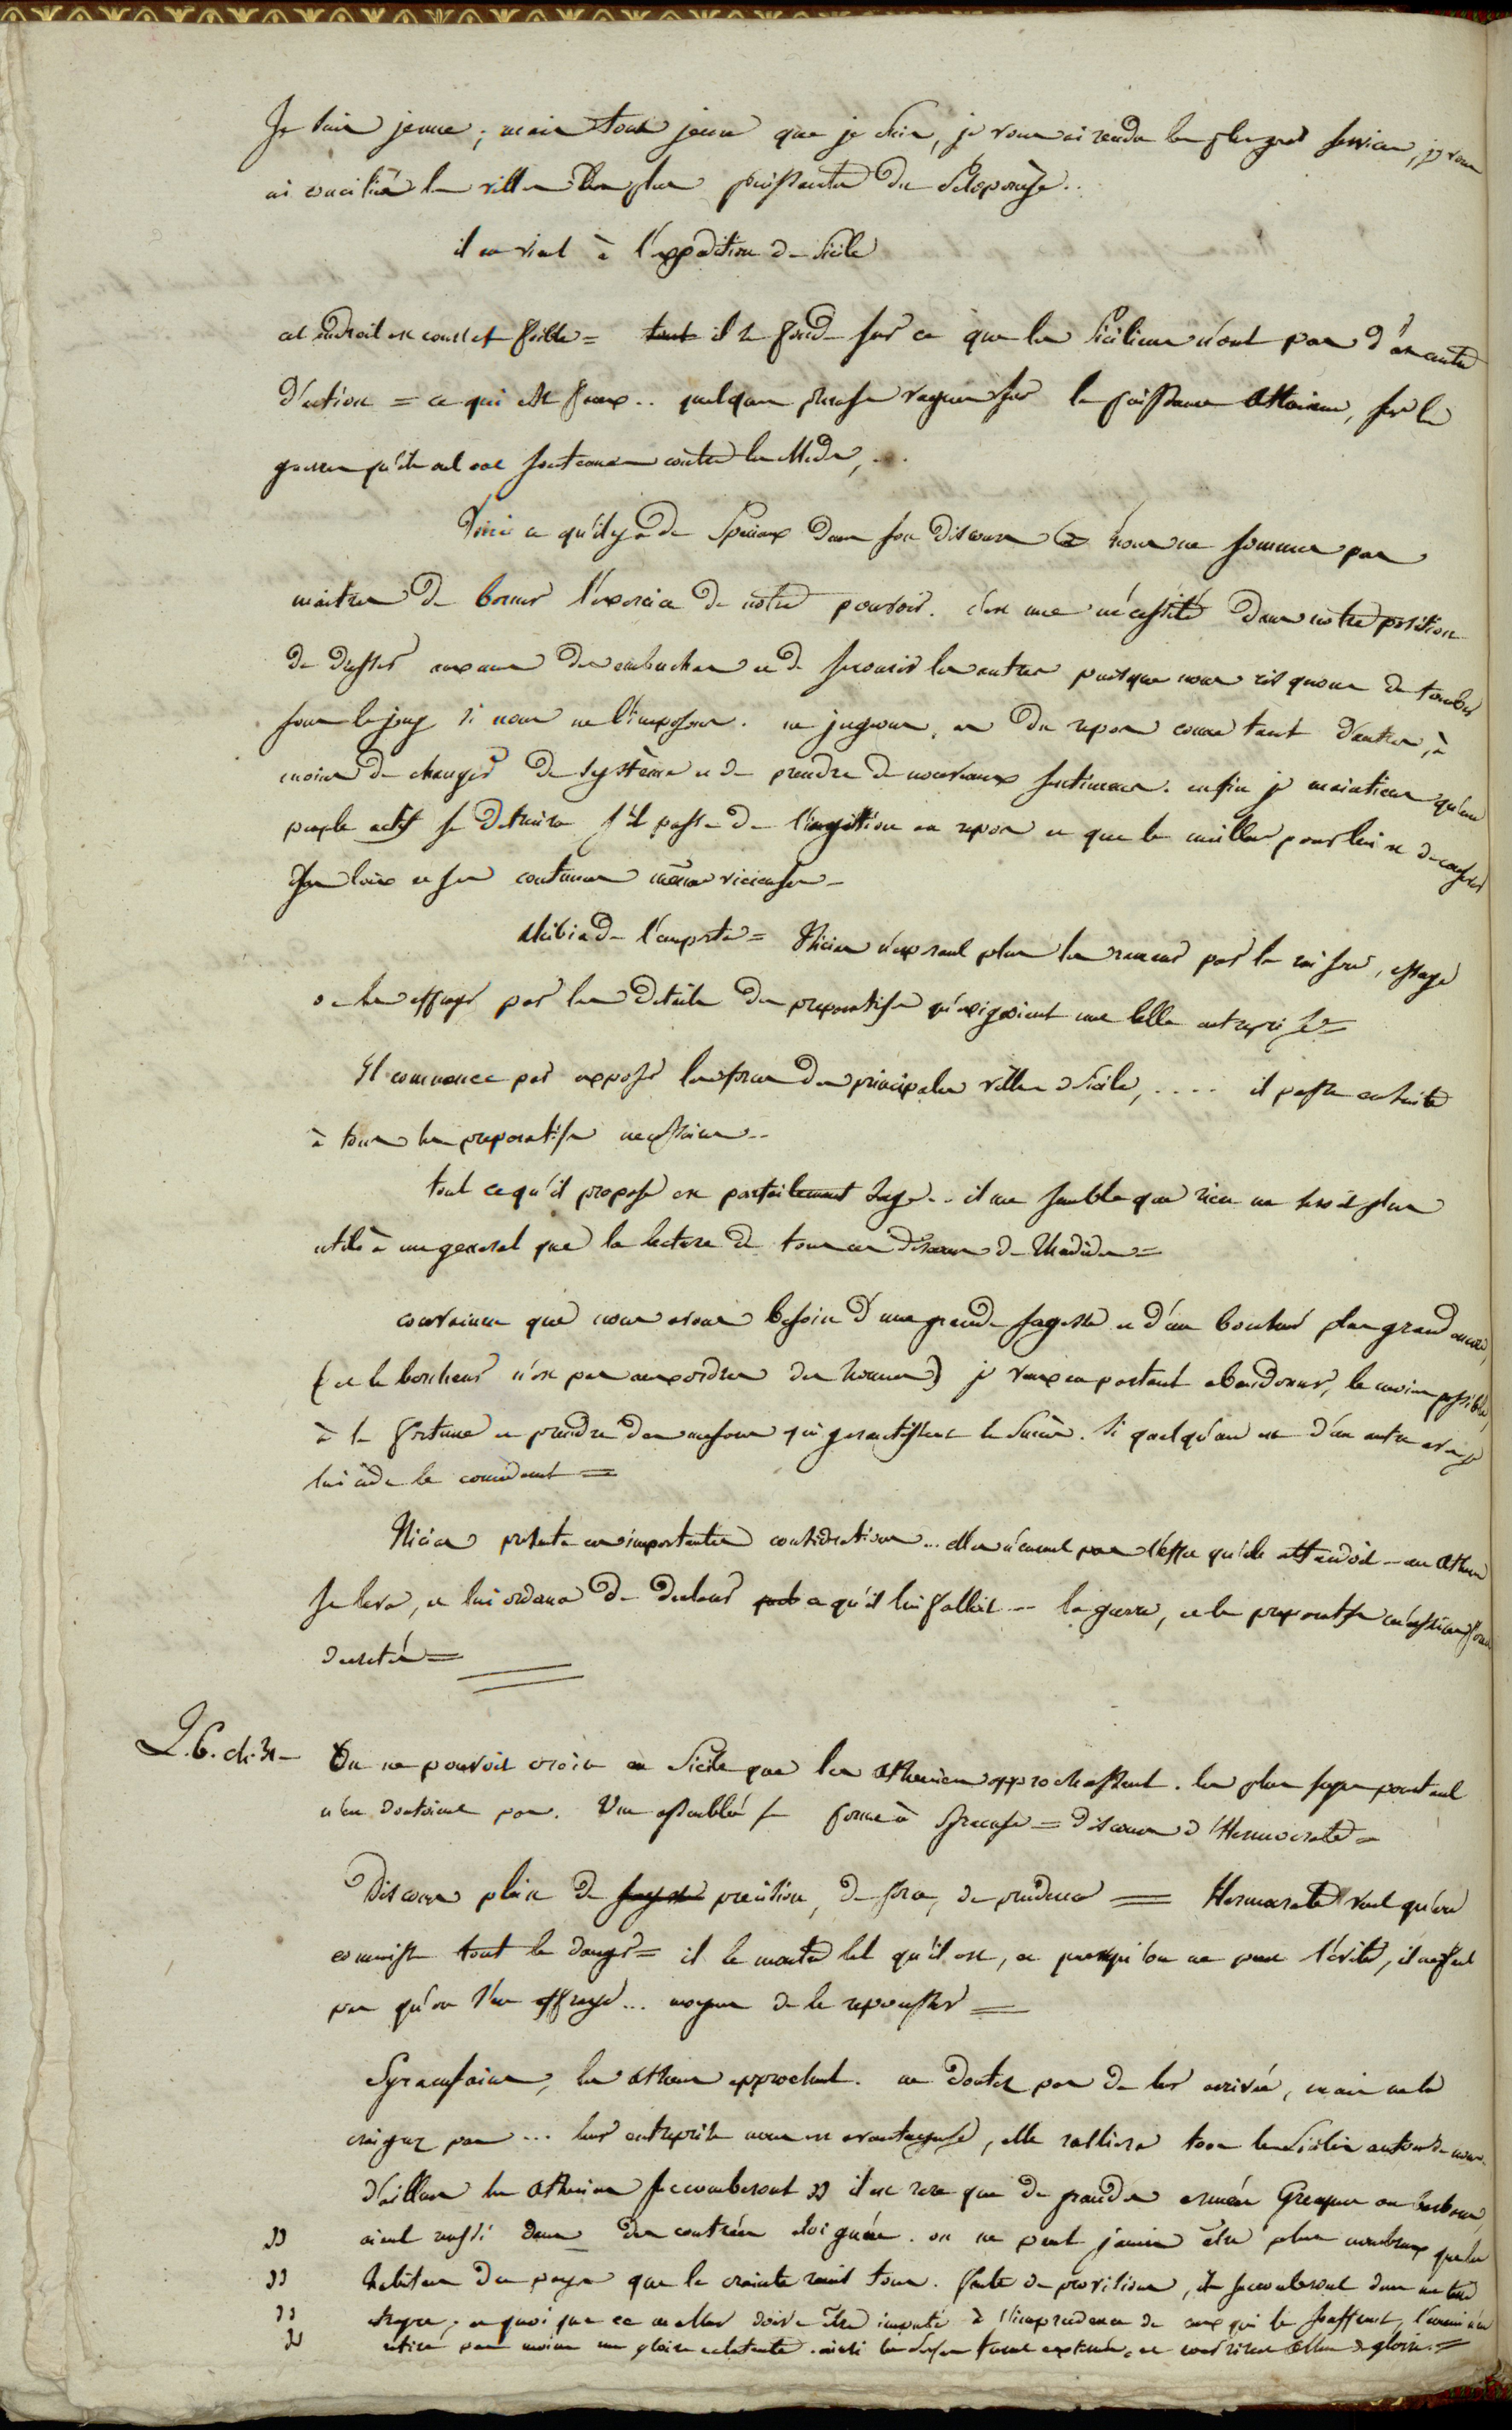 Je suis jeune; mais tout jeune que je suis, je vous ai rendu les plus grds services, je vous
ai concilié les villes les plus puissantes du Péloponèse..
il en vient à l'expédition de Sicile
cet endroit est court et foible = tout il se fonde sur ce que les Siciliens n'ont pas d'
d'action = ce qui est faux.. quelques phrases vagues sur la puissance Athenienne, sur les
guerres qu'ils ont soutenues contre les Medes, ...
Voici ce qu'il y a de Specieux dans son Discours = nous ne sommes pas
maitres de borner l'exercice de notre pouvoir. c'est une nécessité dans notre position
de dresser aux uns des embuches et de secourir les autres puisque nous risquons de tomber
sous le joug si nous ne l'imposons. ne jugeons, du repos comme tant d'autres, à
moins de changer de système et de prendre de nouveaux sentimens. enfin je maintiens qu'un
peuple actif se detruira s'il passe de l'agitation au repos et que le meilleur pour lui est de conserver
ses loix et ses coutumes même vicieuses -
Alcibiade l'emporte = Nicias n'esperant plus les ramener par la raison, essaye
de les effrayer par les details des preparatifs qu'exigeoient une telle entreprise =
Il commence par exposer les forces des principales villes de Sicile, .... il passe ensuite
à tous les preparatifs necessaires..
tout ce qu'il propose est parfaitement sage... il me semble que rien ne seroit plus
utile à un general que la lecture de tous ces discours de Thucidide =
convaincu que nous avons besoin d'une grande sagesse et d'un bonheur plus grand encore,
(et le bonheur n'est pas aux ordres des hommes) je veux en partant abandonner, le moins possible,
à la fortune et prendre des mesures qui garantissent le Succès. Si quelqu'un est d'un autre avis je
lui cède le commandement =
Nicias présenta ces importantes considérations... elles n'eurent pas l'effet qu'il attendoit -- un Athen
se leva, et lui ordonna de declarer ce qu'il lui falloit -- la guerre, et les preparatifs nécessaires furent
decretés =
L. 6. ch. 31 - On ne pouvoit croire en Sicile que les Atheniens approchassent. les plus sages pourtant
n'en doutoient pas. Une assemblée se forme à Syracuse = discours d'Hermocrate =
Discours plein de sagesse précision, de force, de prudence = Hermocrate veut qu'on
connoisse tout le danger = il le montre tel qu'il est, et puisqu'on ne peut l'éviter, il ne faut
pas qu'on s'en effraye... moyens de le repousser =
Syracusains, les Athen approchent. ne doutez pas de leur arrivée, mais ne la
craignez pas ... leur entreprise nous est avantageuse, elle ralliera tous les Sicilien autour de nous.
d'ailleurs les Atheniens succomberont » il est rare que de grandes armées Grecques ou barbares,
» aient reussi dans des contrées éloignées. on ne peut jamais être plus nombreux que les
» habitans du pays que la crainte réunit tous. faute de provisions, ils succomberont dans une terre
» etrangere; et quoi que ce malheur doive être imputé à l'imprudence de ceux qui le souffrent, l'ennemi n'en
» retire pas moins une gloire eclatante.